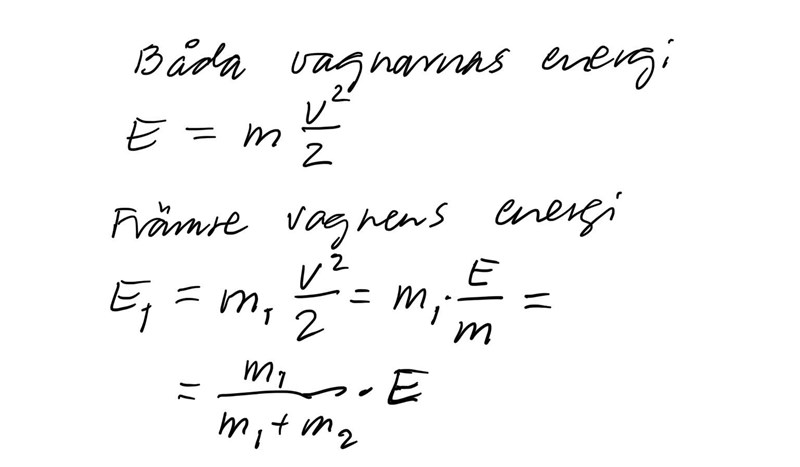 Båda vagnarnas energi
E = m v²/2
Främre vagnens energi
E₁ = m₁ v²/2 = m₁ · E/m =
= m₁/(m₁ + m₂) · E